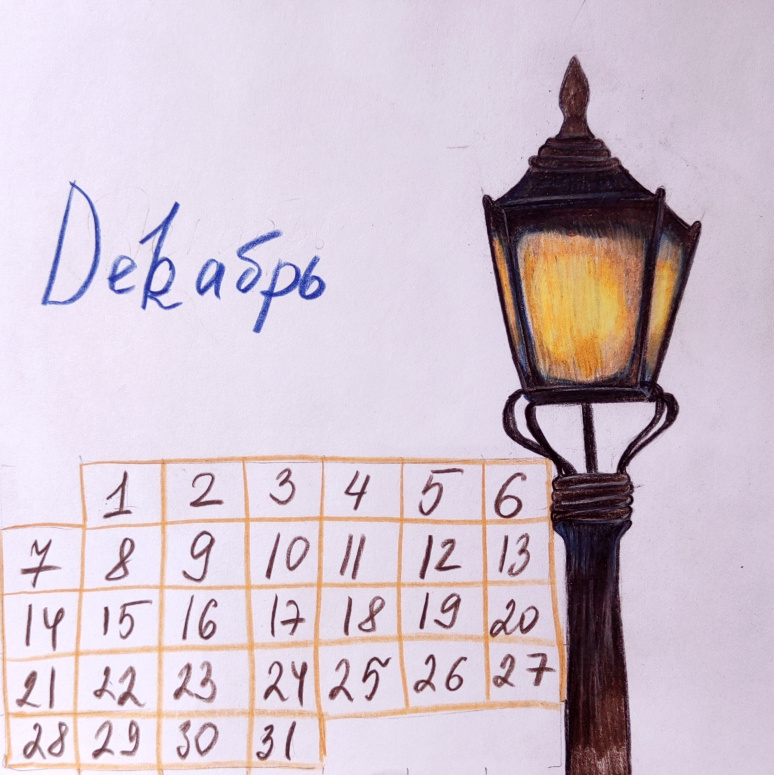 Декабрь
1 2 3 4 5 6
7 8 9 10 11 12 13
14 15 16 17 18 19 20
21 22 23 24 25 26 27
28 29 30 31